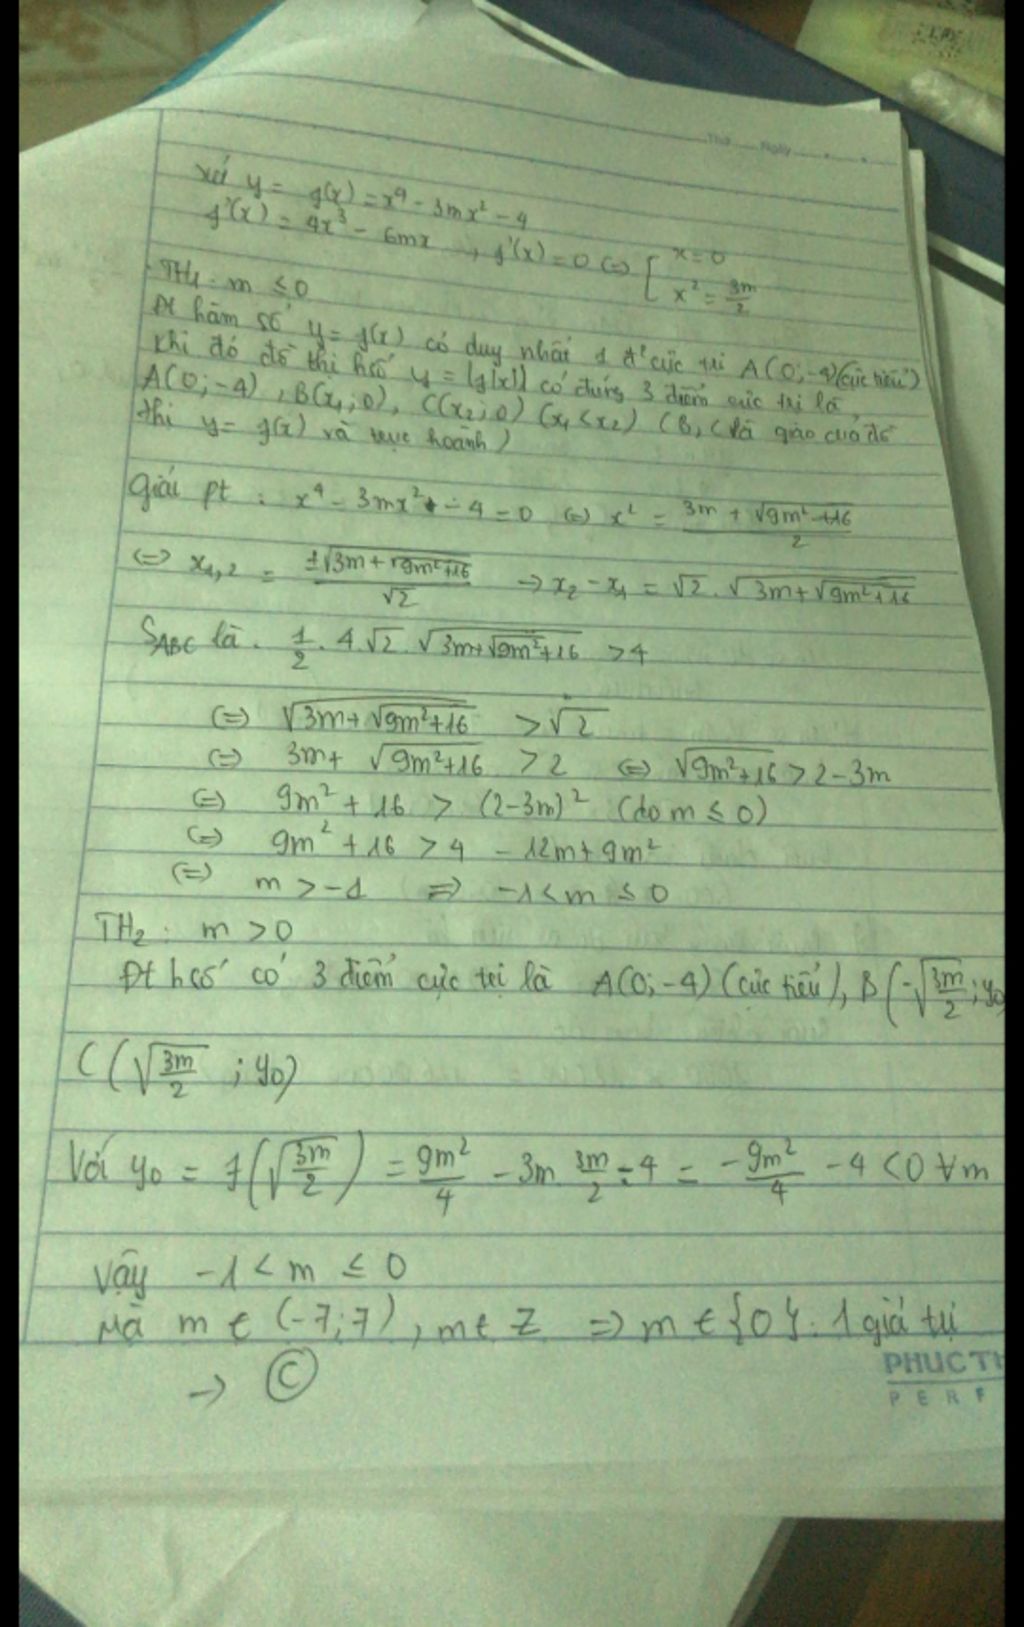 Thứ Ngày
xét y = g(x) = x⁴ - 3mx² - 4
g'(x) = 4x³ - 6mx → g'(x) = 0 (=) [ x = 0
x² = 3m/2
TH1: m ≤ 0
Đt hàm số y = g(x) có duy nhất 1 đ' cực trị A(0;-4)(cực tiểu)
Khi đó đồ thị hsố y = |g(x)| có đúng 3 điểm cực trị là
A(0;-4), B(x₁;0), C(x₂;0) (x₁<x₂) (B, C là giao của đồ
thị y = g(x) và trục hoành)
Giải pt: x⁴ - 3mx² - 4 = 0 (=) x² = (3m + √(9m²+16))/2
(=) x₁,₂ = ±√(3m+√(9m²+16))/√2 → x₂ - x₁ = √2 . √(3m+√(9m²+16))
S_ABC là. 1/2 . 4.√2 . √(3m+√(9m²+16)) > 4
(=) √(3m+√(9m²+16)) > √2
(=) 3m+ √(9m²+16) > 2 (=) √(9m²+16) > 2-3m
(=) 9m² + 16 > (2-3m)² (do m ≤ 0)
(=) 9m² + 16 > 4 - 12m + 9m²
(=) m > -1 => -1 < m ≤ 0
TH2: m > 0
Đt hsố có 3 điểm cực trị là A(0;-4) (cực tiểu), B(-√(3m/2); y₀
C(√(3m/2); y₀)
Với y₀ = f(√(3m/2)) = 9m²/4 - 3m. 3m/2 - 4 = -9m²/4 - 4 < 0 ∀m
Vậy -1 < m ≤ 0
Mà m ∈ (-7;7), m ∈ Z => m ∈ {0}. 1 giá trị
→ Ⓒ
PHUCTH
PERF